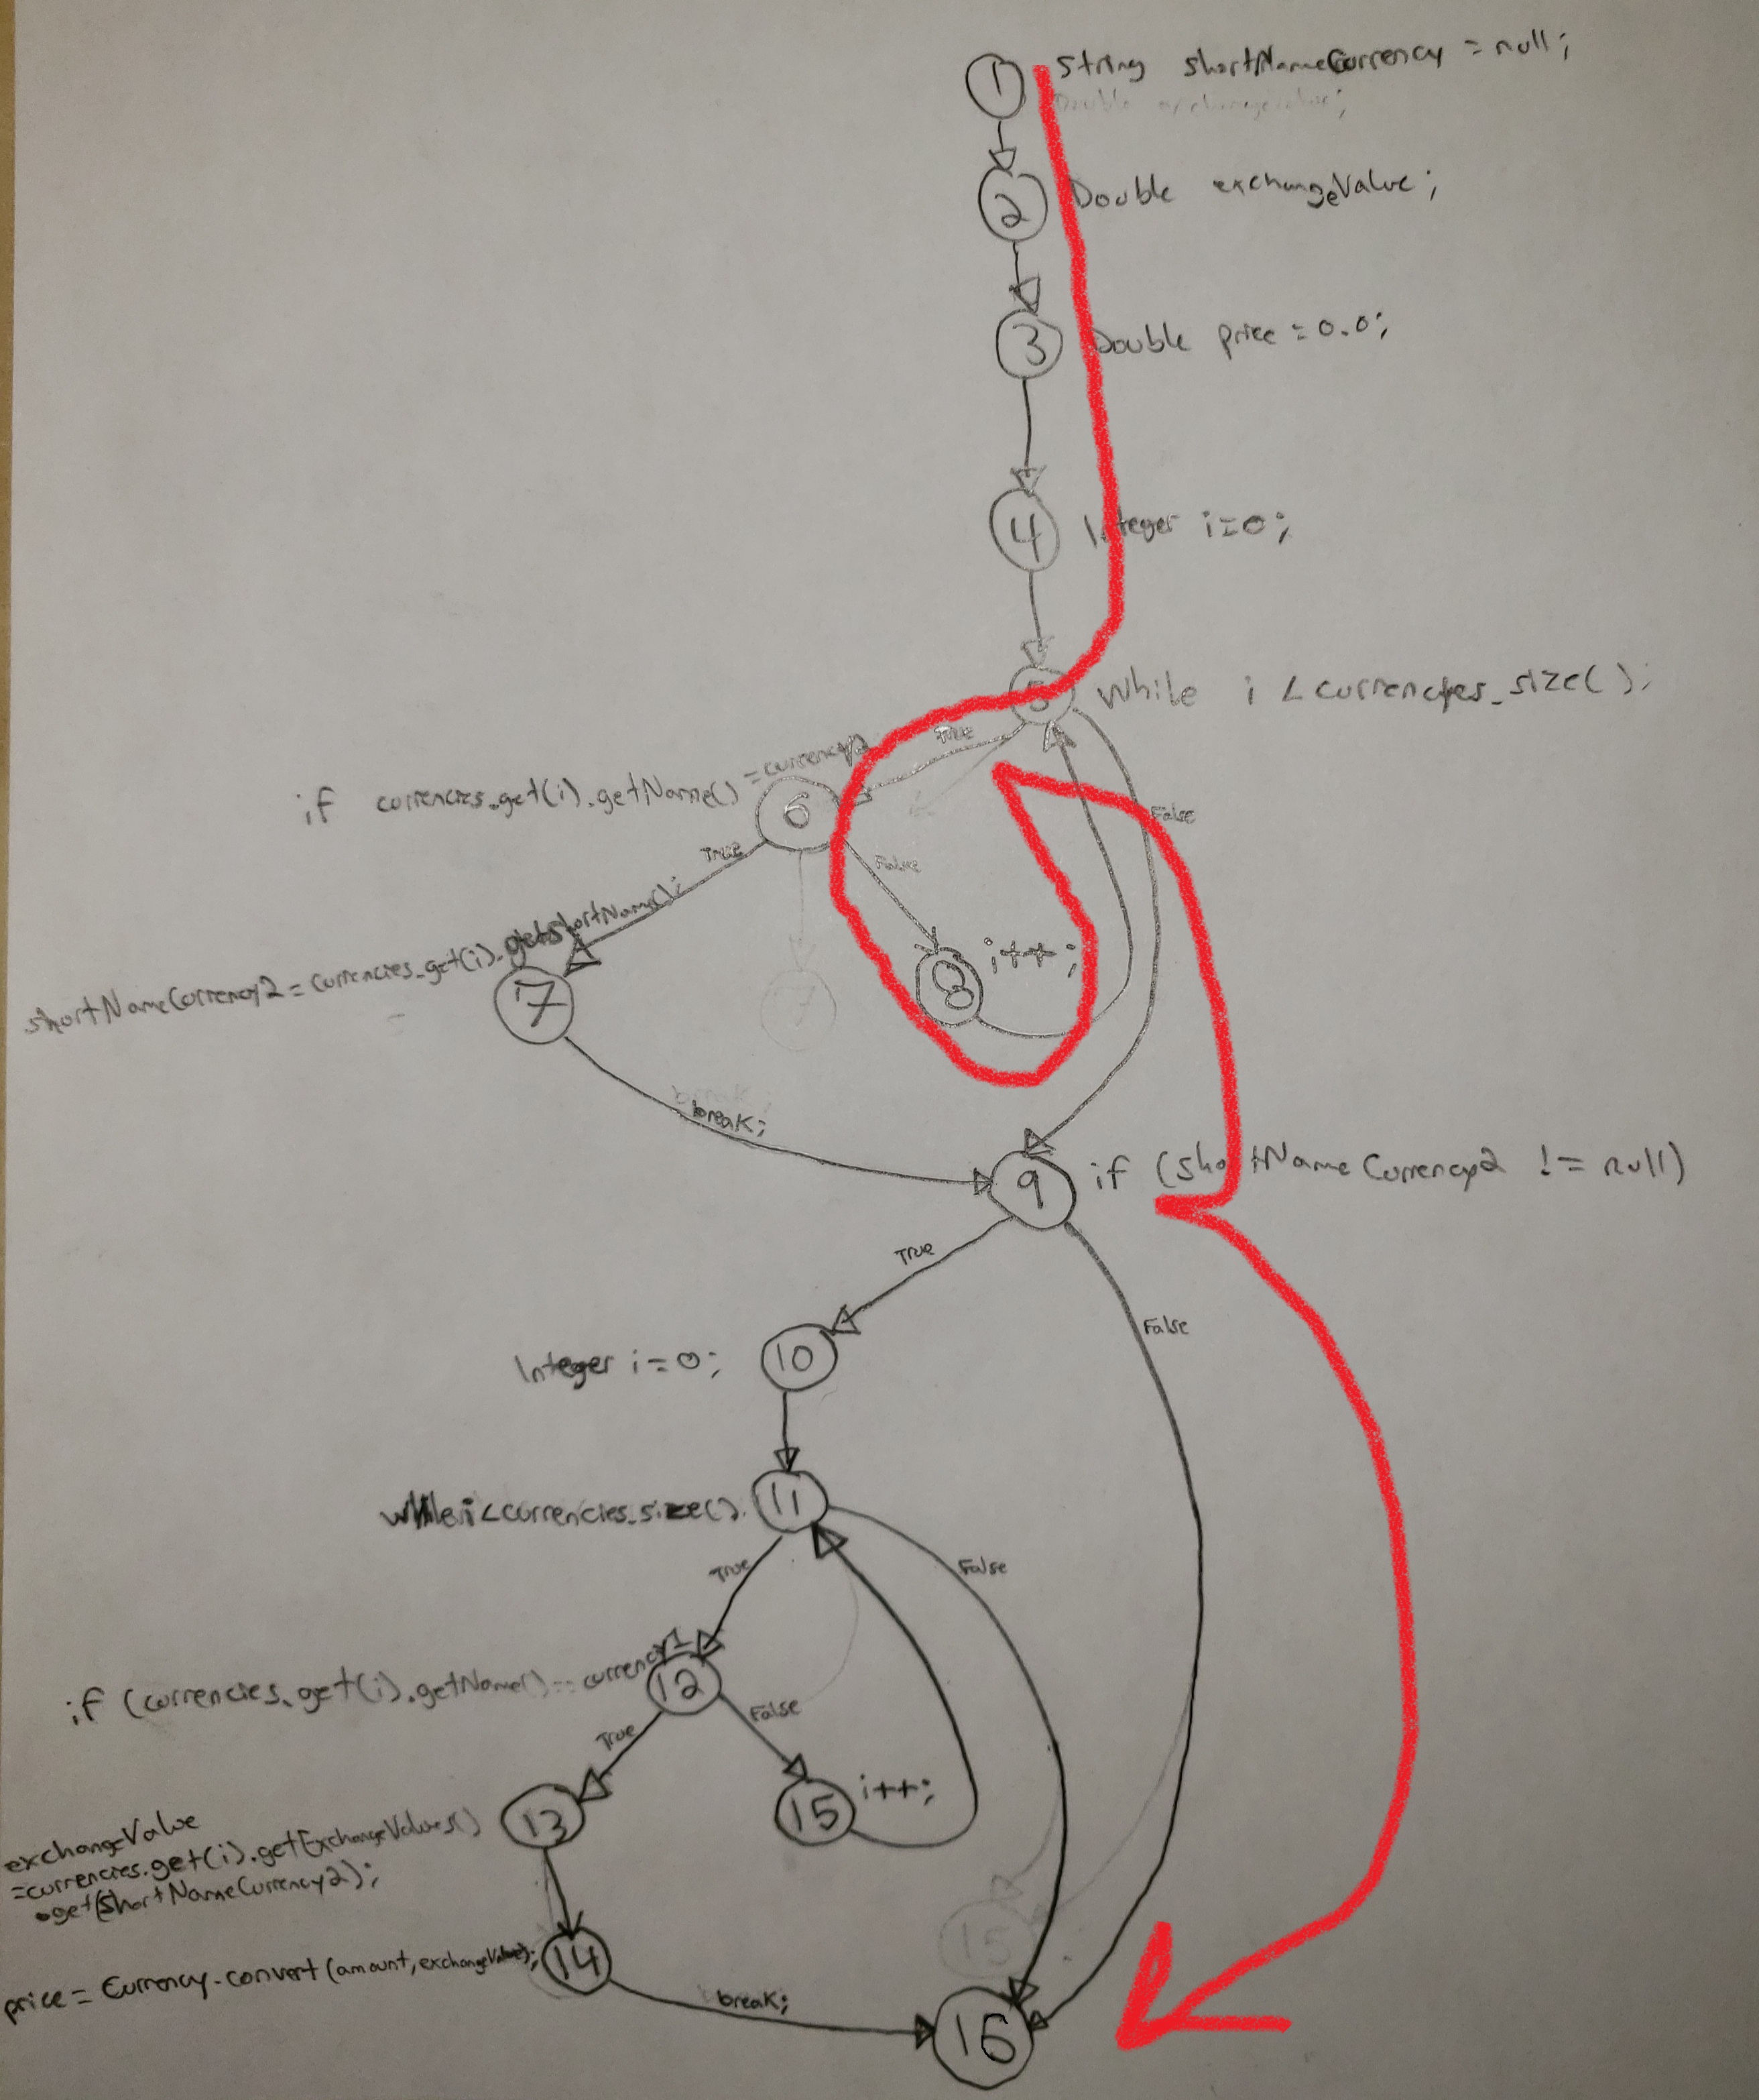 1 String shortNameCurrency = null;
Double exchangeValue;
2 Double exchangeValue;
3 Double price = 0.0;
4 Integer i=0;
5 While i < currencies.size();
True
False
if currencies.get(i).getName() = currency2
6
True
False
shortNameCurrency2 = currencies.get(i).getShortName();
7
8 i++;
7
break;
break;
9 if (shortNameCurrency2 != null)
True
False
Integer i=0; 10
while i < currencies.size(). 11
True
False
if (currencies.get(i).getName() == currency1
12
True
False
13
15 i++;
exchangeValue
=currencies.get(i).getExchangeValues()
.get(shortNameCurrency2);
15
price = Currency.convert(amount,exchangeValue); 14
break;
16